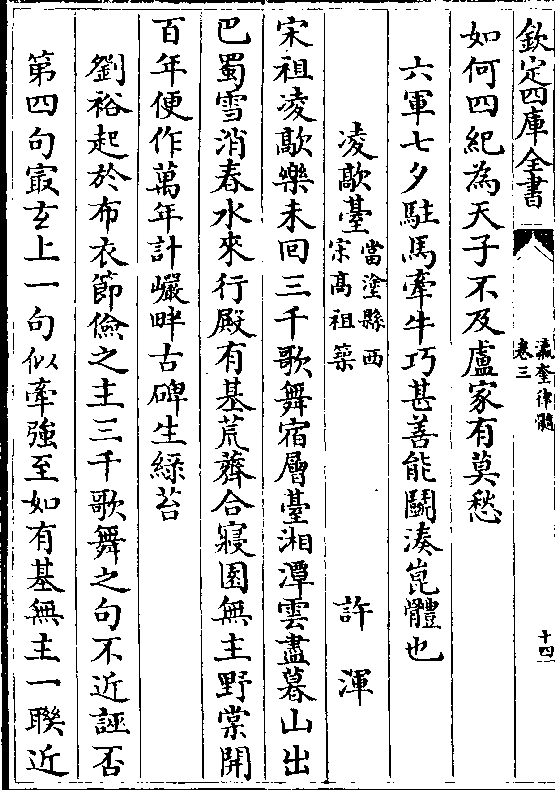 欽定四庫全書
瀛奎律髓
卷三
十四
如何四紀為天子不及盧家有莫愁
六軍七夕駐馬牽牛巧甚善能鬭湊崑體也
凌歊臺
當塗縣西
宋高祖築
許渾
宋祖凌歊樂未回三千歌舞宿層臺湘潭雲盡暮山出
巴蜀雪消春水來行殿有基荒薺合寢園無主野棠開
百年便作萬年計巖畔古碑生綠苔
劉裕起於布衣節儉之主三千歌舞之句不近誣否
第四句最𤣥上一句似牽強至如有基無主一聯近